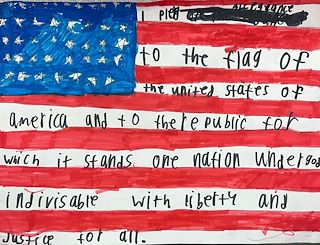 I pleg allegiance
to the flag of
the united states of
america and to the republic for
which it stands one nation under god
indivisable with liberty and
Justice for all.